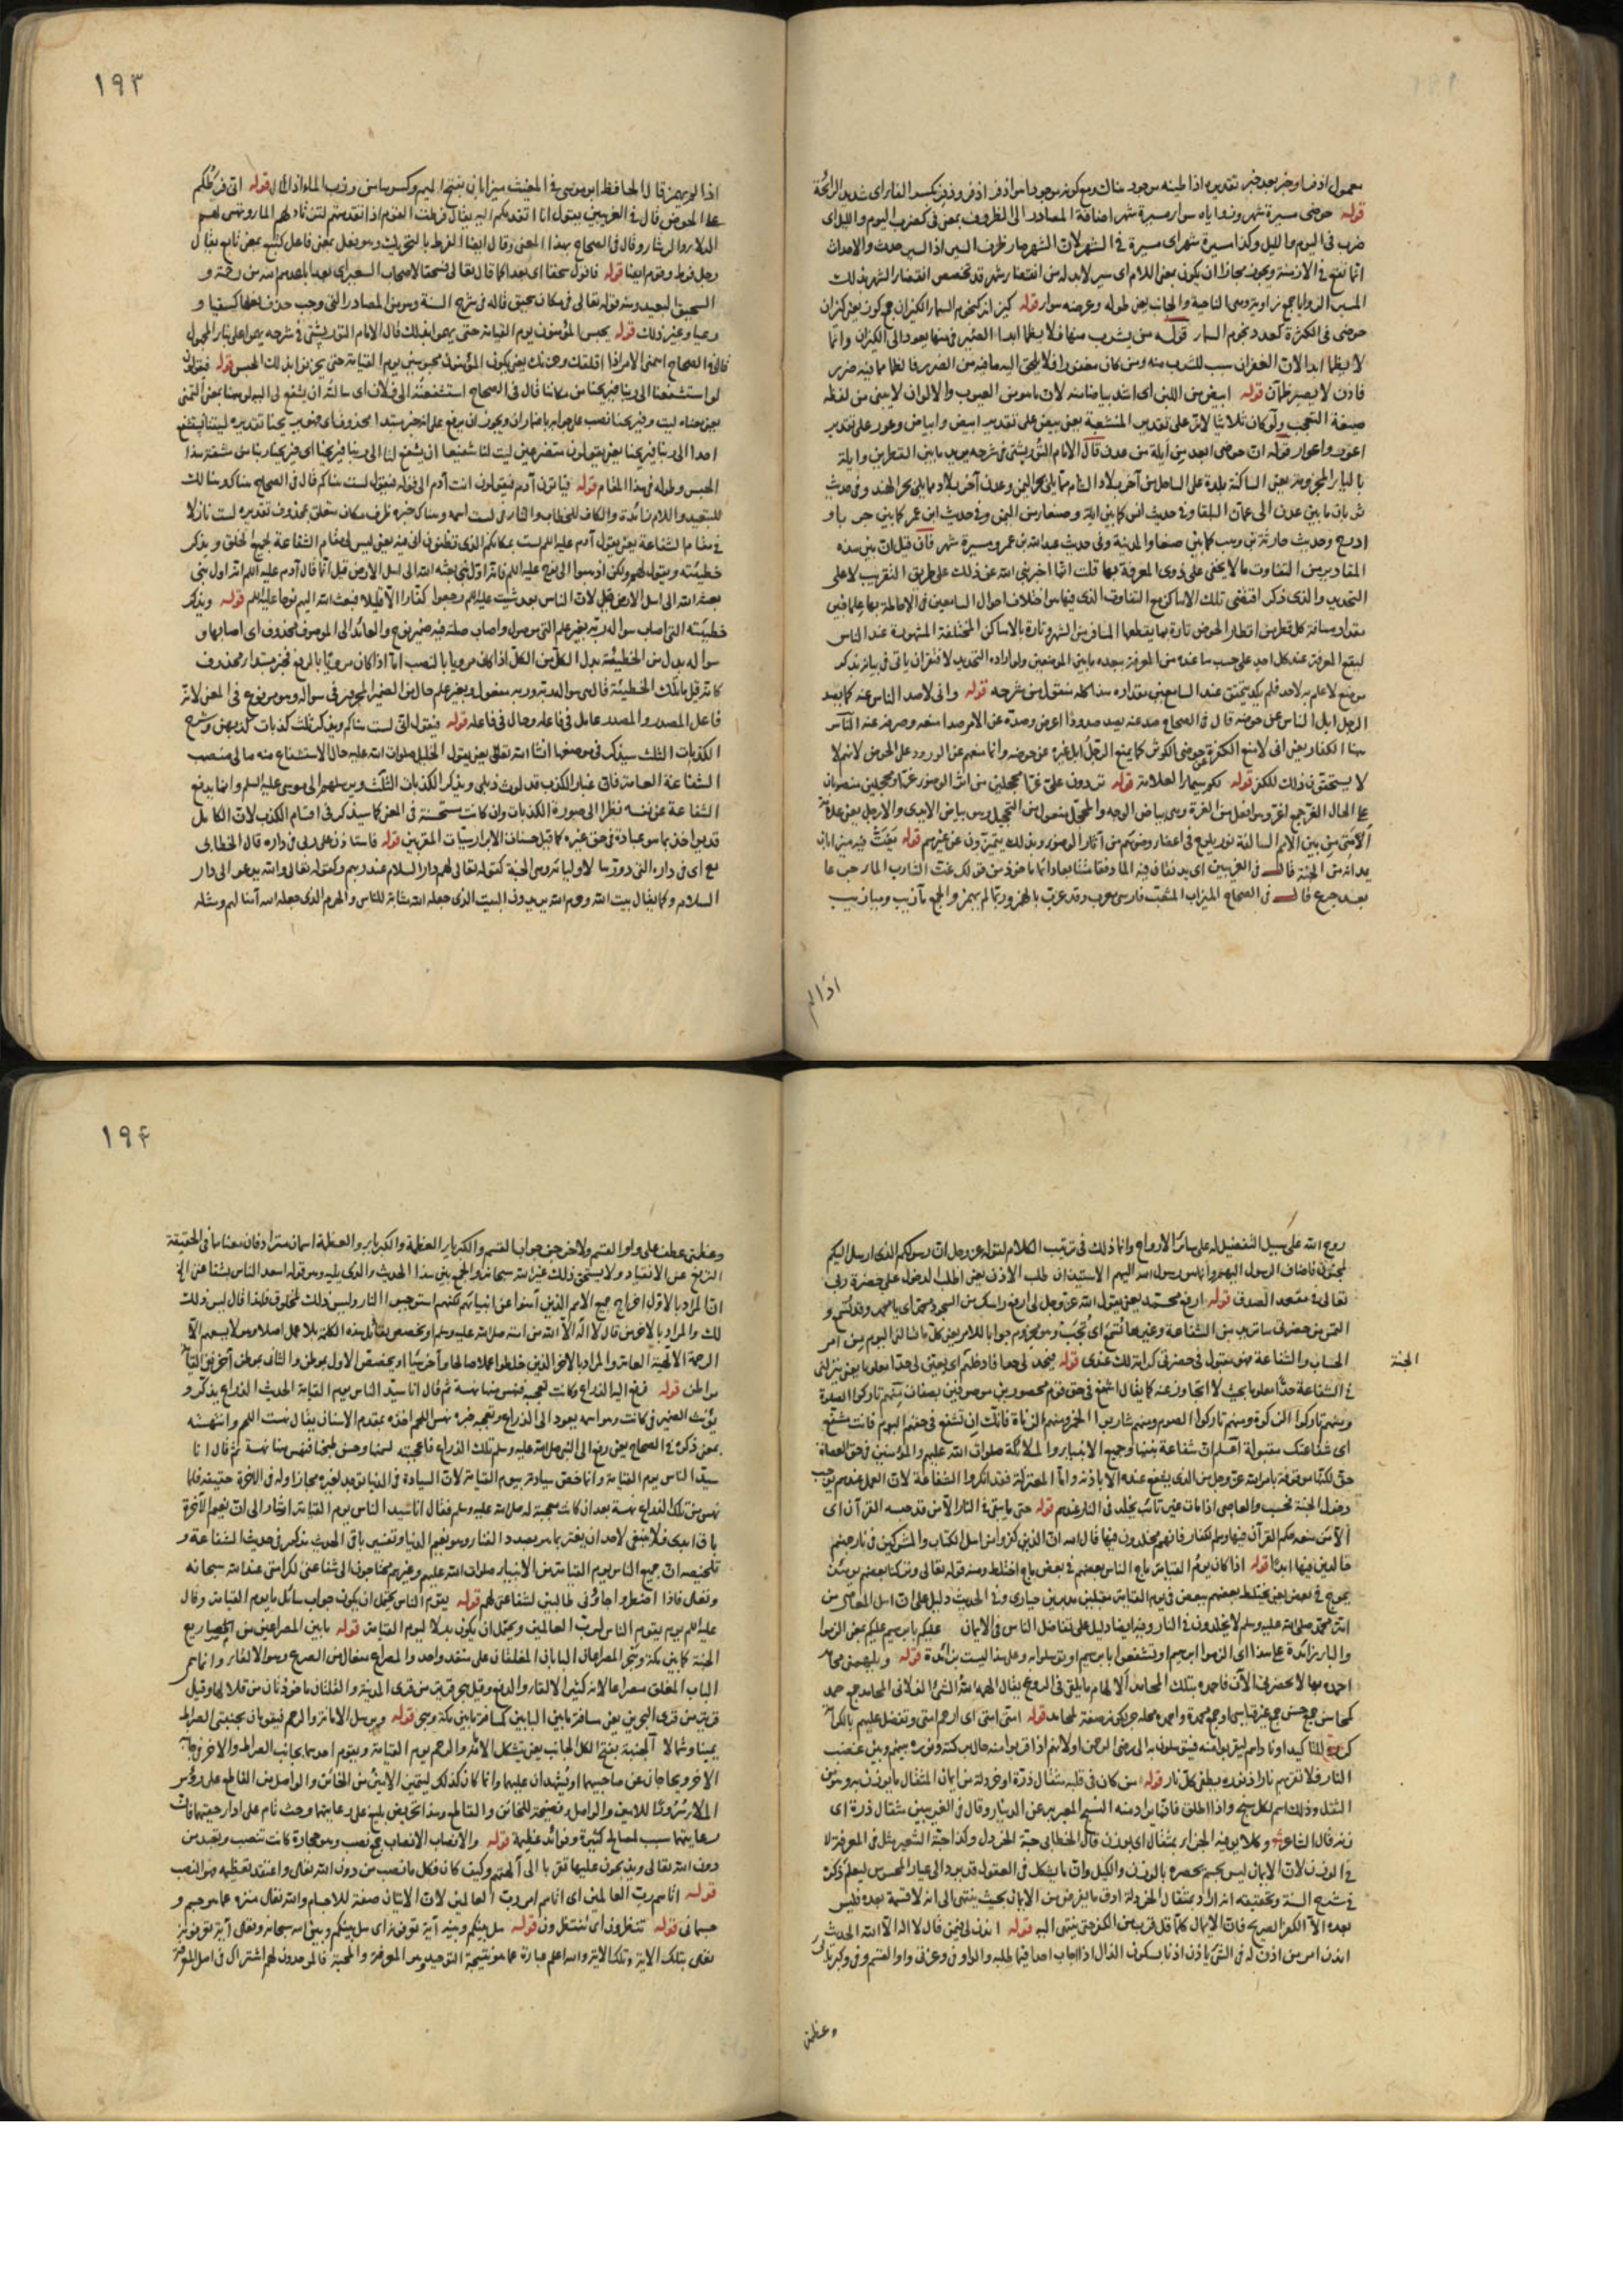 معمول اذفر او خبر بعد خبر تقديره اذا طينه موجود هناك
قوله حوضى مسيرة شهر وزواياه سواء مسيرة شهر اضافة المصادر الى الظروف بمعنى فى كضرب اليوم والليل اى
ضرب فى اليوم والليل وكذا مسيرة شهر اى مسيرة فى الشهر لان الشهر صار ظرف السير اذ السير حدث والاحداث
انما تقع فى الازمنة ويجوز مجازا ان يكون بمعنى اللام اى سير لابد له من انقضاء شهر قد تخصص انقضاء الشهر بذلك
المسير الزوايا جمع زاوية وهى الناحية والجانب يعنى طوله وعرضه سواء قوله كيزانه كنجوم السماء الكيزان جمع كوز يعنى كيزان
حوضى فى الكثرة كعدد نجوم السماء قوله من يشرب منها فلا يظمأ ابدا الضمير فى منها يعود الى الكيزان وانما
لا يظمأ ابدا لان الغفران سبب للشرب منه ومن كان مغفورا فلا يلحق اليه ما فيه من الضرر فالظمأ مما فيه ضرر
فاذن لا يصير ظمآن قوله ابيض من اللبن اى اشد بياضا منه لان ما هو من العيوب والالوان لا يبنى من لفظه
صيغة التعجب ولو كان ثلاثيا لانه على تقدير المنشعبة يعنى بيض على تقدير ابيض وابياض وعور على تقدير
اعور واعوار قوله ان حوضى ابعد من أيلة من عدن قال الامام التوربشتى فى شرحه يريد ما بين القطرين وايلة
بالياء المجزومة يعنى الساكنة بلدة على الساحل من آخر بلاد الشام مما يلى بحر اليمن وعدن آخر بلاد مما يلى بحر الهند وفى حديث
ثوبان ما بين عدن الى عمان البلقاء وفى حديث انس كما بين ايلة وصنعاء من اليمن وفى حديث ابن عمر كما بين جرباء و
اذرح وحديث حارثة بن وهب كما بين صنعاء والمدينة وفى حديث عبد الله بن عمرو مسيرة شهر فان قيل ان بين هذه
المقادير من التفاوت ما لا يخفى على ذوى المعرفة بها قلت انما اخبر نبى الله عن ذلك على طريق التقريب لا على
التحديد والذى ذكر اقتضى تلك الاماكن مع التفاوت الذى فيها من اختلاف احوال السامعين فى الاحاطة بها علما فبين
مقدار مسافة كل قطر من اقطار الحوض تارة بما يقطعها المسافر من الشهر وتارة بالاماكن المختلفة المشهورة عند الناس
ليقع المعرفة عند كل احد على حسب ما عنده من المعرفة ببعد ما بين الموضعين ولو اراد به التحديد لافتقر ان ياتى فى بيانه بذكر
موضع لا علم به لاحد فلم يكد يتحقق عند السامعين مقداره هذا كله منقول من شرحه قوله وانى لاصد الناس عنه كما يصد
الرجل ابل الناس عن حوضه قال فى الصحاح صد عنه يصد صدودا اعرض وصده عن الامر صدا منعه وصرفه عنه الناس
هنا الكفار يعنى انى لامنع الكفرة عن حوضى الكوثر كما يمنع الرجل ابل غيره عن حوضه وانما منعهم عن الورود على الحوض لانهم لا
لا يستحقون ذلك للكفر قوله لكم سيماء العلامة قوله تردون على غرا محجلين من اثر الوضوء غرا ومحجلين منصوبان
على الحال الغر جمع اغر وهو افعل من الغرة وهى بياض الوجه والمحجل مفعول من التحجيل وهو بياض الايدى والارجل
من بين الامم السالفة نور يلوح فى اعضاء وضوئهم من آثار الوضوء وبذلك يتميزون عن غيرهم قوله يغت فيه ميزابان
يمدانه من الجنة قال فى الغريبين اى يدفقان فيه الماء دفقا متتابعا دائما ماخوذ من قولك غت الشارب الماء جرعا
بعد جرع قال فى الصحاح الميزاب المثعب فارسى معرب وقد عرب بالهمز وربما لم يهمز والجمع مآزيب وميازيب
اذا لم
١٩٣
اذا لم يهمز قال الحافظ ابو موسى فى المغيث ميزابان بفتح الميم وكسرها من وزب الماء اذا سال قوله انى فرطكم
على الحوض قال فى الغريبين يقول انا اتقدمكم اليه يقال فرطت القوم اذا تقدمتهم لترتاد لهم الماء وتهيئ لهم
الدلاء والرشاء وقال فى الصحاح بهذا المعنى وقال ايضا الفرط بالتحريك وهو فعل بمعنى فاعل كتبع بمعنى تابع يقال
رجل فرط وقوم ايضا قوله فاقول سحقا اى بعدا كما قال تعالى فسحقا لاصحاب السعير اى بعدا باعدهم الله من رحمته و
السحيق البعيد ومنه قوله تعالى فى مكان سحيق قاله فى شرح السنة وهو من المصادر التى وجب حذف فعلها كسقيا و
رعيا وغير ذلك قوله يحبس المؤمنون يوم القيامة حتى يهموا بذلك قال الامام التوربشتى فى شرحه يهموا على بناء المجهول
قال فى الصحاح اهمنى الامر اذا اقلقك وحزنك يعنى يكون المؤمنون محبوسين يوم القيامة حتى يحزنوا بذلك الحبس قوله فيقولون
لو استشفعنا الى ربنا فيريحنا من مكاننا قال فى الصحاح استشفعته الى فلان اى سالته ان يشفع لى اليه لو هنا بمعنى التمنى
احدا الى ربنا فيريحنا يعنى يقولون متضرعين ليت لنا شفيعا ان يشفع لنا الى ربنا فيريحنا اى فيريحنا ربنا من مشقة هذا
الحبس وطوله فى هذا المقام قوله فياتون آدم فيقولون انت آدم الى قوله فيقول لست هناكم قال فى الصحاح هناك وهنالك
للتبعيد واللام زائدة والكاف للخطاب والتاء فى لست اسمه وهناك خبره ظرف مكان متعلق بمحذوف تقديره لست نازلا
فى مقام الشفاعة يعنى يقول آدم عليه السلام لست بمكانكم الذى تظنون انى فيه يعنى ليس لى مقام الشفاعة لجميع الخلق ويذكر
خطيئته ويقول لهم ولكن اذهبوا الى نوح عليه السلام فانه اول نبى بعثه الله الى اهل الارض قيل انما قال آدم عليه السلام انه اول نبى
بعثه الله الى اهل الارض لان الناس بعد شيث عليه السلام رجعوا كفارا الا قليلا فبعث الله اليهم نوحا عليه السلام قوله ويذكر
خطيئته التى اصاب سواله ربه بغير علم التى موصول واصاب صلته فيه ضمير نوح والعائد الى الموصوف محذوف اى اصابها و
سواله بدل من الخطيئة بدل الكل من الكل اذا كان مرويا بالنصب اما اذا كان مرويا بالرفع فخبر مبتدأ محذوف
كانه قيل ما تلك الخطيئة قال هى سواله ربه وربه مفعول وبغير علم حال من الضمير المجرور فى سواله وهو مرفوع فى المعنى لانه
فاعل المصدر والمصدر عامل فى فاعله وحال فى فاعله قوله فيقول انى لست هناكم ويذكر ثلث كذبات كذبهن وشرح
الكذبات الثلث سيذكر فى موضعها انشا الله تعالى يعنى يقول الخليل صلوات الله عليه حال الاستشفاع منه مالى منصب
الشفاعة عن نفسه نظرا الى صورة الكذبات وان كانت مستحسنة فى المعنى كما سيذكر فى اقسام الكذب لان الكامل
قد يؤاخذ بما هو عبادة فى حق غيره كما قيل حسنات الابرار سيئات المقربين قوله فاستاذن على ربى فى داره قال الخطابى
اى فى داره التى دورها لاوليائه وهى الجنة كقوله تعالى لهم دار السلام عند ربهم وكقوله تعالى والله يدعو الى دار
السلام وكما يقال بيت الله وحرم الله يريدون البيت الذى جعله الله مثابة للناس والحرم الذى جعله الله آمنا لهم ومثله
روح الله على سبيل التفضيل له على سائر الارواح وانما ذلك فى ترتيب الكلام كقوله عز وجل ان رسولكم الذى ارسل اليكم
لمجنون فاضاف الرسول اليهم وانما هو رسول الله اليهم الاستيذان طلب الاذن يعنى اطلب الدخول على حضرة ربى
تعالى فى مقعد الصدق قوله ارفع محمد يعنى يقول الله عز وجل لى ارفع راسك من السجود محمد اى يا محمد وقل تسمع و
الحساب والشفاعة قوله فيحد لى حدا
الجنة
فى الشفاعة حدا معلوما بحيث لا اتجاوز عنه كما يقال اشفع فى حق قوم محصورين موصوفين بصفات منهم تاركوا الصلوة
ومنهم تاركوا الزكوة ومنهم تاركوا الصوم ومنهم شاربوا الخمر ومنهم الزناة فانك ان تشفع فى حقهم اليوم فانت مشفع
اى شفاعتك مقبولة اعلم ان شفاعة نبينا وجميع الانبياء والملائكة صلوات الله عليهم والمؤمنين فى حق العصاة
دخول الجنة فحسب والعاصى اذا مات غير تائب يخلد فى النار عندهم قوله حتى ما يبقى فى النار الا من قد حبسه القرآن اى
الا من منعه حكم القرآن فيها وهم الكفار فانهم مخلدون فيها قال الله ان الذين كفروا من اهل الكتاب والمشركين فى نار جهنم
خالدين فيها ابدا قوله اذا كان يوم القيامة ماج الناس بعضهم فى بعض ماج اختلط ومنه قوله تعالى وتركنا بعضهم يومئذ
يموج فى بعض يعنى يختلط بعضهم ببعض فى يوم القيامة مقبلين مدبرين حيارى وفى الحديث دليل على ان اهل المعاصى من
امة محمد صلى الله عليه وسلم لا يخلدون فى النار وفيه ايضا دليل على تفاضل الناس فى الايمان عليكم بابرهيم عليكم بمعنى الزموا
والباء زائدة على هذا اى الزموا ابرهيم او تشفعوا بابرهيم قوله ويلهمنى محامد
احمده بها لا تحضرنى الآن فاحمده بتلك المحامد الالهام ما يلقى فى الروع يقال الهمه الله الشئ الفلانى المحامد جمع حمد
قوله امتى امتى اى ارحم امتى وتفضل عليهم بالكرامة
قوله من كان فى قلبه مثقال ذرة او خردلة من ايمان المثقال ما يوزن به وهو من
الثقل وذلك اسم لكل سنج واذا اطلق فانما يراد منه السنج المعبر به عن الدينار وقال فى الغريبين مثقال ذرة اى
زنة قال الشاعر وكلا يوفيه الجزاء بمثقال اى بوزن قال الخطابى حبة الخردل وكذا حبة الشعير مثل فى المعرفة لا
فى الوزن لان الايمان ليس بجسم يحصره بالوزن والكيل وان ما يشكل فى المعقول قد يرد الى عيار المحسوس ليعلم ذكره
فى شرح السنة وتحقيقه انه اراد بمثقال الخردلة ادق ما يفرض من الايمان بحيث ينتهى الى انه لا قسمة بعده فليس
بعده الا الكفر الصريح فان الايمان كلما قل قرب من الكفر حتى ينتهى اليه قوله ائذن لى فيمن قال لا اله الا الله الحديث
ائذن امر من اذن له فى الشئ ياذن اذنا بسكون الذال اذا اجاب احدا فيما طلبه والواو فى وعزتى واو القسم وفى وكبريائى
وعظمتى
١٩۴
وعظمتى عطف على واو القسم ولاخرجن جواب القسم والكبرياء العظمة والكبرياء والعظمة اسمان مترادفان معناهما فى الحقيقة
الترفع عن الانقياد ولا يستحق ذلك غير الله سبحانه والجمع بين هذا الحديث والذى يليه وهو قوله اسعد الناس بشفاعتى الخ
ان المراد بالاول اخراج جميع الامم الذين آمنوا عن انبيائهم لكنهم استوجبوا النار وليس ذلك لمخلوق فلهذا قال ليس ذلك
لك والمراد بالآخر من قال لا اله الا الله من امته صلى الله عليه وسلم
قوله فرفع اليه الذراع وكانت تعجبه فنهس منها نهسة ثم قال انا سيد الناس يوم القيامة الحديث الذراع يذكر و
يؤنث الضمير فى كانت وهو اسمه يعود الى الذراع وتعجبه خبره نهس اللحم اخذه بمقدم الاسنان يقال نهست اللحم وانتهسته
بمعنى ذكره فى الصحاح يعنى رفع الى النبى صلى الله عليه وسلم تلك الذراع فاعجبته لسمنها وحسن طبخها فنهس منها نهسة ثم قال انا
سيد الناس يوم القيامة وانما خص سيادته بيوم القيامة لان السيادة فى الدنيا قد
باق ابدى فلا ينبغى لاحد ان يغتر بما هو بصدد الفناء وهو نعيم الدنيا وتفسير باقى الحديث مذكور فى حديث الشفاعة و
تلخيصه ان جميع الناس يوم القيامة من الانبياء صلوات الله عليهم وغيرهم محتاجون الى شفاعتى لكرامتى عند الله سبحانه
وتعالى فاذا اضطروا جاؤنى طالبين لشفاعتى لهم قوله يقوم الناس يحتمل ان يكون جواب سائل ما يوم القيامة وقال
عليه السلام يوم يقوم الناس لرب العالمين ويحتمل ان يكون بدلا ليوم القيامة قوله ما بين المصراعين من مصاريع
الجنة كما بين مكة وهجر المصراعان البابان المغلقان على منفذ واحد والمصراع مفعال من الصرع وهو الالقاء وانما سمى
الباب المغلق مصراعا لانه كثير الالقاء والدفع وقيل هجر قرية من قرى المدينة والقلتان ماخوذتان من قلالها وقيل
قرية من قرى البحرين يعنى مسافة ما بين البابين كمسافة ما بين مكة وهجر قوله ويرسل الامانة والرحم فيقومان بجنبتى الصراط
يمينا وشمالا الجنبة بفتح الكل الجانب يعنى يتشكل الامانة والرحم يوم القيامة ويقوم احدهما بجانب الصراط والآخر بجانبه
الاخر ويحاجان عن صاحبهما او يشهدان عليهما وانما كان كذلك ليتميز الامين من الخائن والواصل من القاطع على رؤس
رعايتهما سبب لمصالح كثيرة وفوائد عظيمة قوله والانصاب الانصاب جمع نصب وهو حجارة كانت تنصب وتعبد من
دون الله تعالى ويذبحون عليها تقربا الى آلهتهم وكيف كان فكل ما نصب من دون الله تعالى واعتقد تعظيمه فهو النصب
قوله اتاهم رب العالمين اى اتاهم امر رب العالمين لان الاتيان صفة للاجسام والله تعالى منزه عما هو جسم و
جسمانى قوله تنتظرون اى تنتظرون قوله هل بينكم وبينه آية تعرفونه اى هل بينكم وبين الله سبحانه وتعالى آية تعرفونه
تعالى بتلك الآية وتلك الآية والله اعلم عبارة عما هو نتيجة التوحيد من المعرفة والمحبة فالموحدون لهم اشتراك فى اصل المعرفة